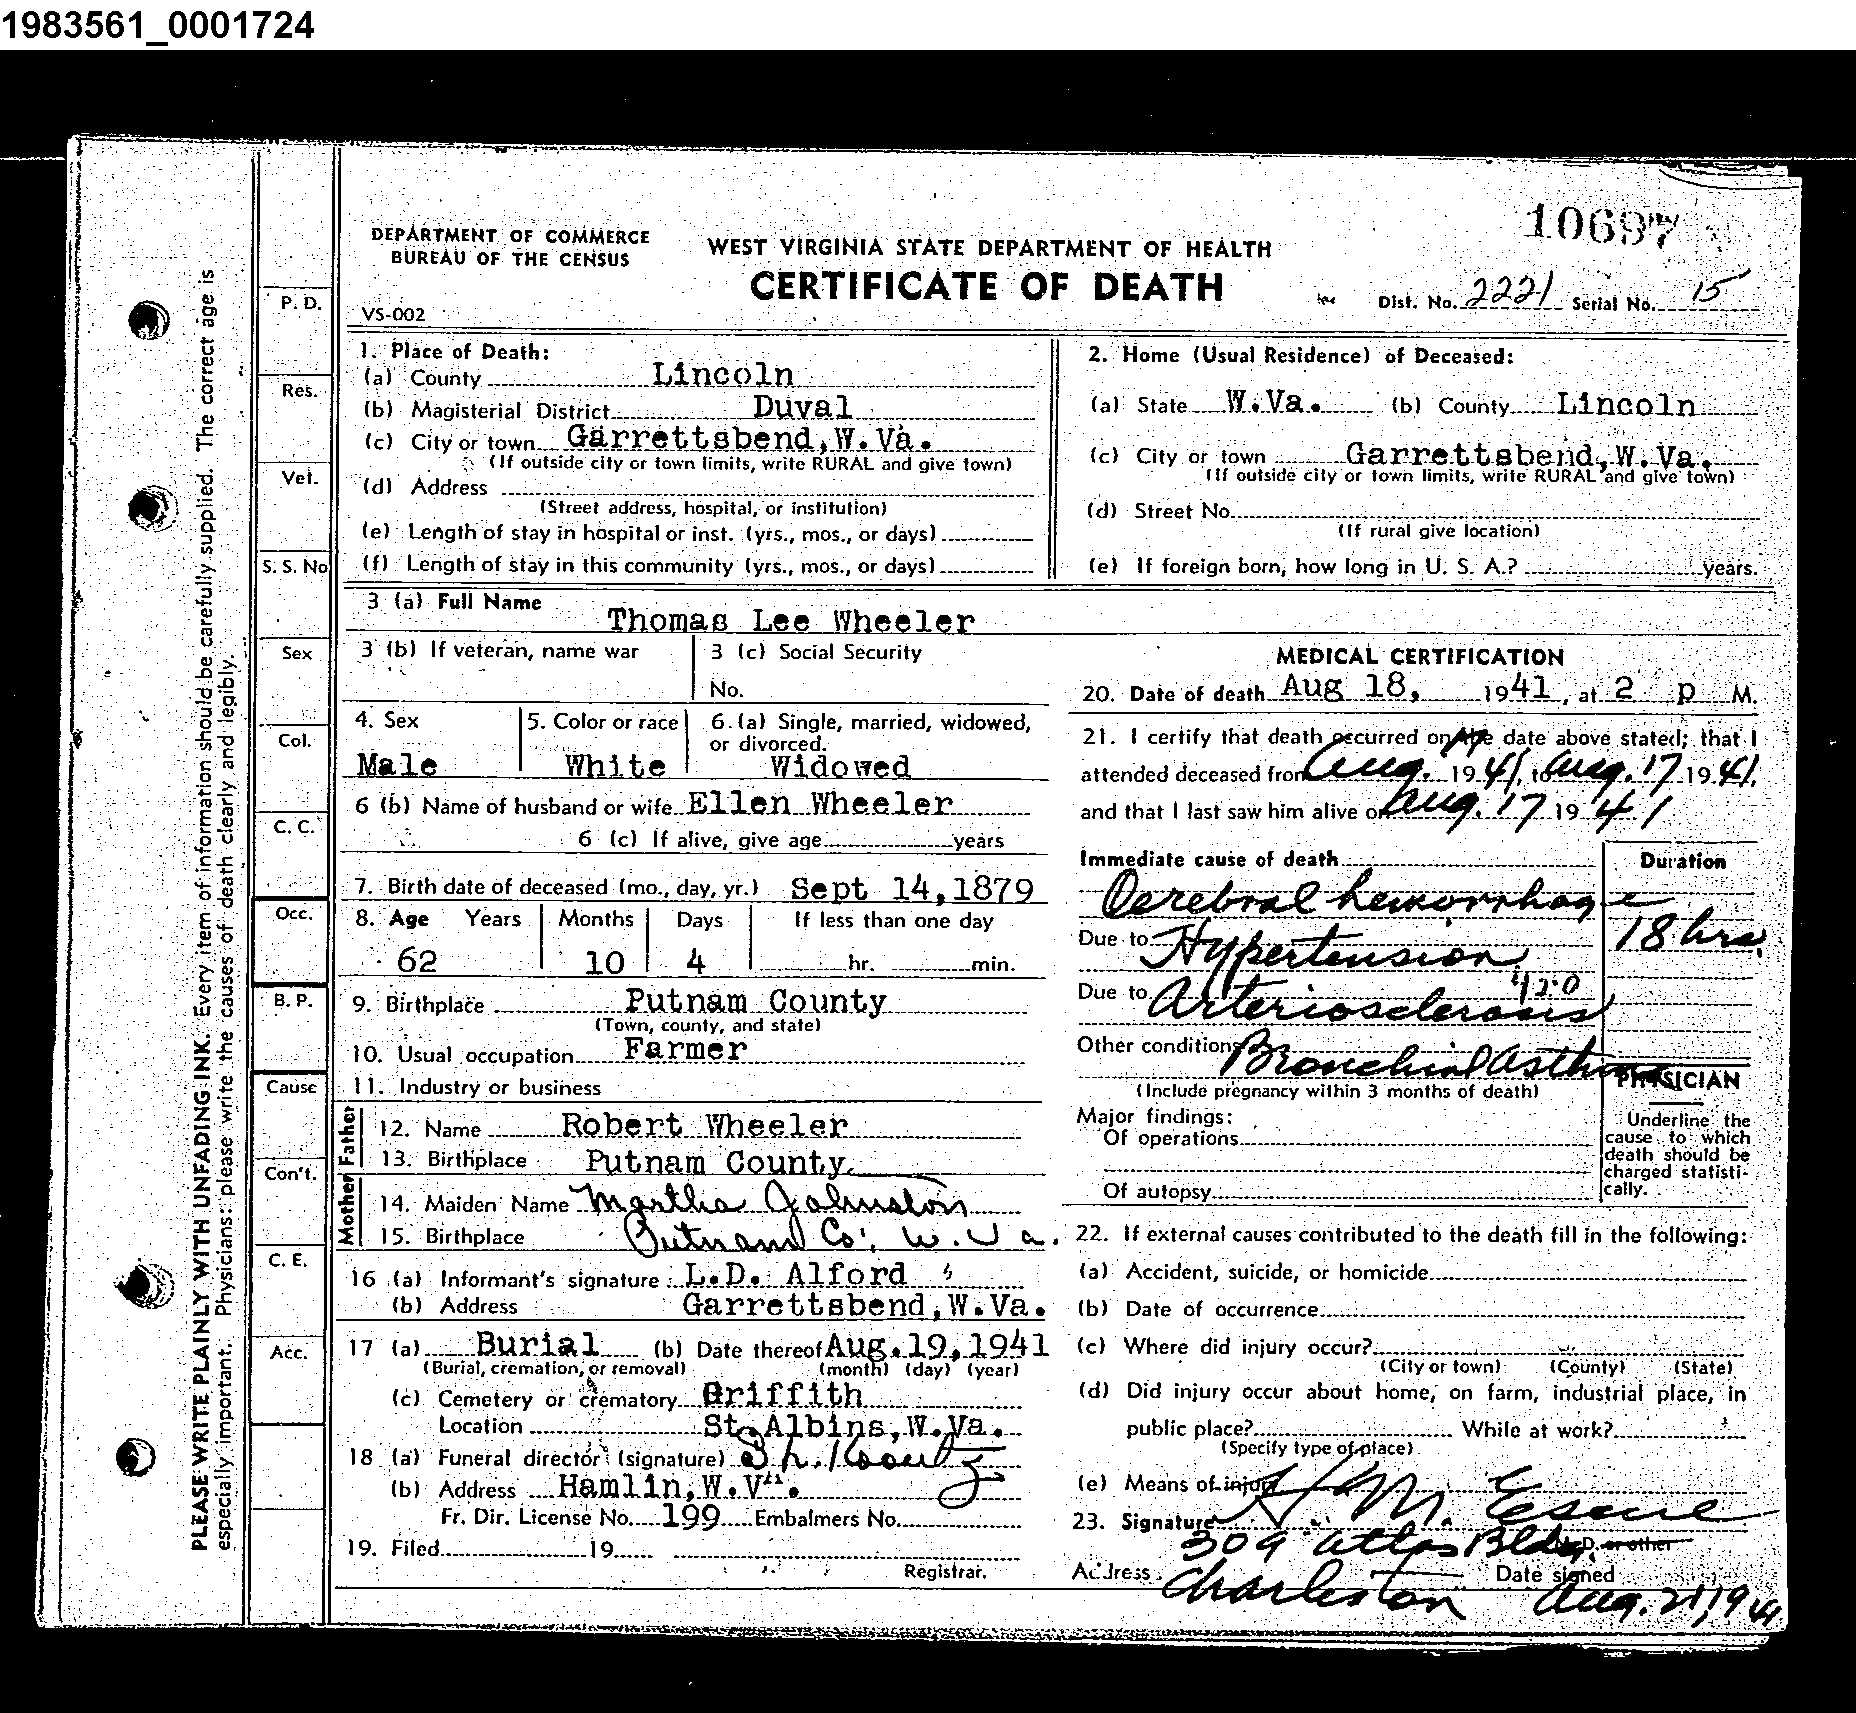 1983561_0001724
10697
DEPARTMENT OF COMMERCE
BUREAU OF THE CENSUS
WEST VIRGINIA STATE DEPARTMENT OF HEALTH
CERTIFICATE OF DEATH
VS-002
Dist. No. 2221 Serial No. 15
PLEASE WRITE PLAINLY WITH UNFADING INK. Every item of information should be carefully supplied. The correct age is
especially important. Physicians: please write the causes of death clearly and legibly.
P. D.
Res.
Vet.
S. S. No
Sex
Col.
C. C.
Occ.
B. P.
Cause
Con't.
C. E.
Acc.
1. Place of Death:
(a) County Lincoln
(b) Magisterial District Duval
(c) City or town Garrettsbend, W.Va.
(If outside city or town limits, write RURAL and give town)
(d) Address
(Street address, hospital, or institution)
(e) Length of stay in hospital or inst. (yrs., mos., or days)
(f) Length of stay in this community (yrs., mos., or days)
2. Home (Usual Residence) of Deceased:
(a) State W.Va. (b) County Lincoln
(c) City or town Garrettsbend, W.Va.
(If outside city or town limits, write RURAL and give town)
(d) Street No.
(If rural give location)
(e) If foreign born, how long in U. S. A.? years.
3 (a) Full Name Thomas Lee Wheeler
3 (b) If veteran, name war
3 (c) Social Security
No.
4. Sex
Male
5. Color or race
White
6. (a) Single, married, widowed,
or divorced.
Widowed
6 (b) Name of husband or wife Ellen Wheeler
6 (c) If alive, give age years
7. Birth date of deceased (mo., day, yr.) Sept 14, 1879
8. Age Years Months Days If less than one day
62 10 4 hr. min.
9. Birthplace Putnam County
(Town, county, and state)
10. Usual occupation Farmer
11. Industry or business
Father
12. Name Robert Wheeler
13. Birthplace Putnam County
Mother
14. Maiden Name Martha Johnston
15. Birthplace Putnam Co. W. Va.
16 (a) Informant's signature L.D. Alford
(b) Address Garrettsbend, W.Va.
17 (a) Burial (b) Date thereof Aug. 19, 1941
(Burial, cremation, or removal) (month) (day) (year)
(c) Cemetery or crematory Griffith
Location St. Albins, W.Va.
18 (a) Funeral director (signature) Koontz
(b) Address Hamlin, W.Va.
Fr. Dir. License No. 199 Embalmers No.
19. Filed 19
Registrar.
MEDICAL CERTIFICATION
20. Date of death Aug 18, 1941, at 2 p M.
21. I certify that death occurred on the date above stated; that I
attended deceased from Aug. 17 1941, to Aug. 17 1941.
and that I last saw him alive on Aug. 17 1941
Immediate cause of death
Duration
Cerebral hemorrhage
18 hrs.
Due to Hypertension
Due to Arteriosclerosis
Other conditions Bronchial Asthma
(Include pregnancy within 3 months of death)
Major findings:
Of operations
Of autopsy
PHYSICIAN
Underline the
cause to which
death should be
charged statisti-
cally.
22. If external causes contributed to the death fill in the following:
(a) Accident, suicide, or homicide
(b) Date of occurrence
(c) Where did injury occur?
(City or town) (County) (State)
(d) Did injury occur about home, on farm, industrial place, in
public place? While at work?
(Specify type of place)
(e) Means of injury
23. Signature H. M. Escue
M.D. or other
Address 309 Atlas Bldg.
Charleston
Date signed Aug. 21, 1941